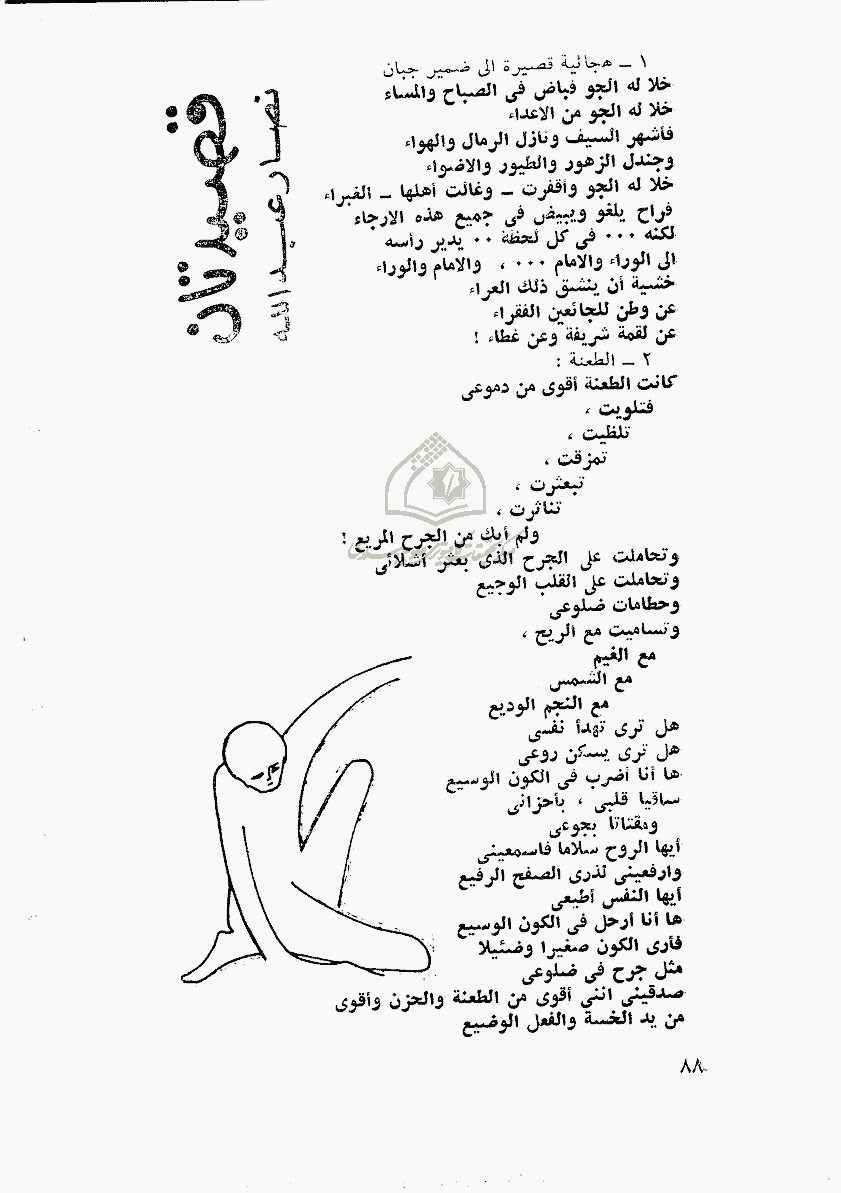 قصيدتان
نصار عبد الله
١ ـ هجائية قصيرة الى ضمير جبان
خلا له الجو فباض فى الصباح والمساء
خلا له الجو من الاعداء
فأشهر السيف ونازل الرمال والهواء
وجندل الزهور والطيور والاضواء
خلا له الجو وأقفرت ـ وغالت أهلها ـ الغبراء
فراح يلغو ويبيض فى جميع هذه الارجاء
لكنه ٠٠٠ فى كل لحظة ٠٠ يدير رأسه
الى الوراء والامام ٠٠٠ ، والامام والوراء
خشية أن ينشق ذلك العراء
عن وطن للجائعين الفقراء
عن لقمة شريفة وعن غطاء !
٢ ـ الطعنة :
كانت الطعنة أقوى من دموعى
فتلويت ،
تلظيت ،
تمزقت ،
تبعثرت ،
تناثرت ،
ولم أبك من الجرح المريع !
وتحاملت على الجرح الذى بعثر أشلائى
وتحاملت على القلب الوجيع
وحطامات ضلوعى
وتساميت مع الريح ،
مع الغيم
مع الشمس
مع النجم الوديع
هل ترى تهدأ نفسى
هل ترى يسكن روعى
ها أنا أضرب فى الكون الوسيع
ساقيا قلبى ، بأحزانى
ومقتاتا بجوعى
أيها الروح سلاما فاسمعينى
وارفعينى لذرى الصفح الرفيع
أيها النفس أطيعى
ها أنا أرحل فى الكون الوسيع
فأرى الكون صغيرا وضئيلا
مثل جرح فى ضلوعى
صدقينى اننى أقوى من الطعنة والحزن وأقوى
من يد الخسة والفعل الوضيع
٨٨